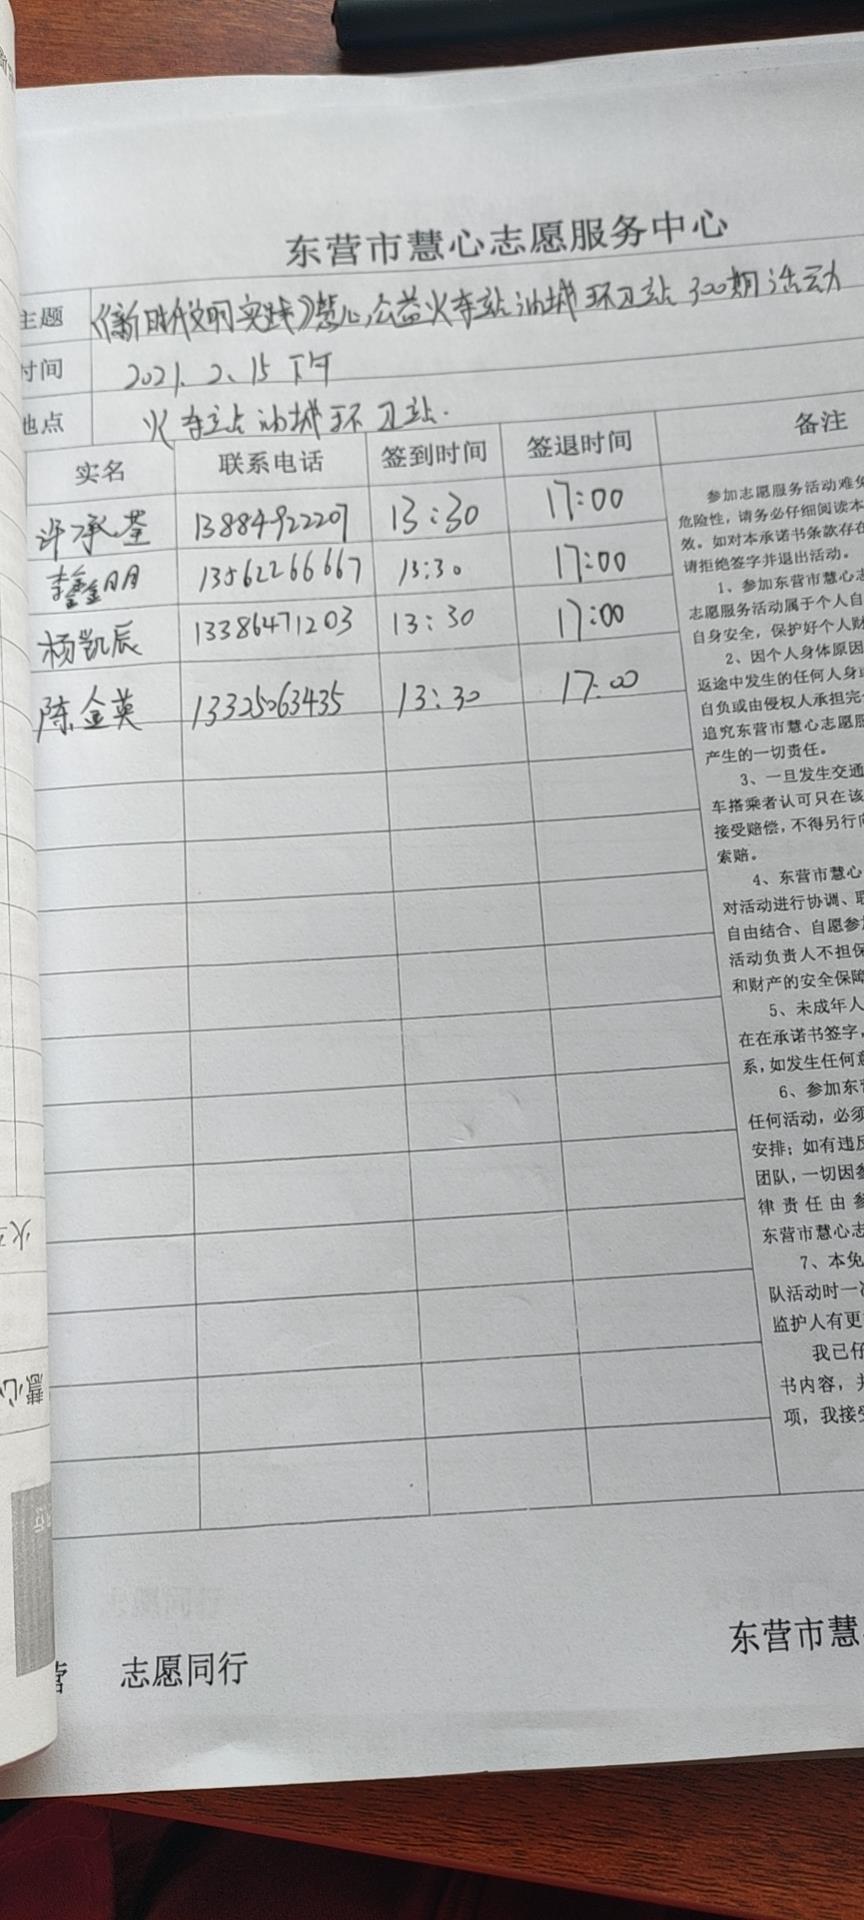 东营市慧心志愿服务中心
主题 《新时代文明实践》慧心公益火车站油城环卫站300期活动
时间 2021.2.15下午
地点 火车站油城环卫站.
实名 联系电话 签到时间 签退时间 备注
许承荃 13884922207 13:30 17:00
李鑫明 13562266667 13:30 17:00
杨凯辰 13386471203 13:30 17:00
陈金英 13325063435 13:30 17:00
参加志愿服务活动难免
危险性，请务必仔细阅读本
效。如对本承诺书条款存在
请拒绝签字并退出活动。
1、参加东营市慧心志
志愿服务活动属于个人自
自身安全，保护好个人财
2、因个人身体原因
返途中发生的任何人身或
自负或由侵权人承担完
追究东营市慧心志愿服
产生的一切责任。
3、一旦发生交通
车搭乘者认可只在该
接受赔偿，不得另行向
索赔。
4、东营市慧心
对活动进行协调、联
自由结合、自愿参加
活动负责人不担保
和财产的安全保障
5、未成年人
在在承诺书签字，
系，如发生任何意
6、参加东营
任何活动，必须
安排；如有违反
团队，一切因参
律责任由参
东营市慧心志
7、本免
队活动时一
监护人有更
我已仔
书内容，并
项，我接受
营 志愿同行
东营市慧